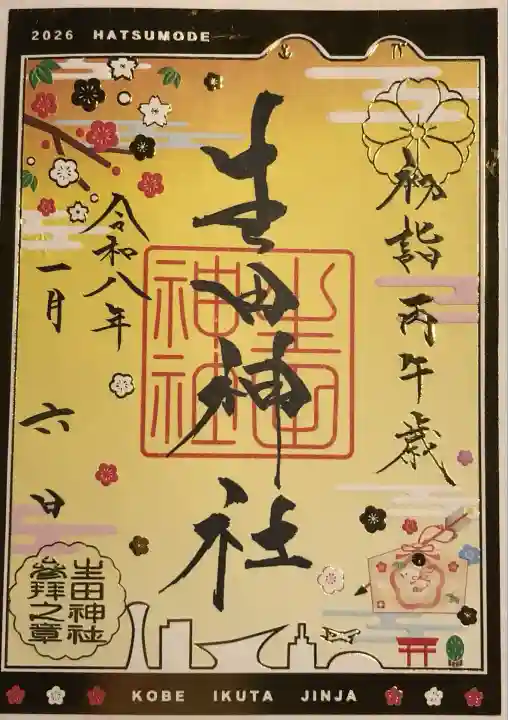 2026 HATSUMODE
初詣丙午歳
生田神社
生田神社
令和八年
一月六日
生田神社
參拜之章
KOBE IKUTA JINJA